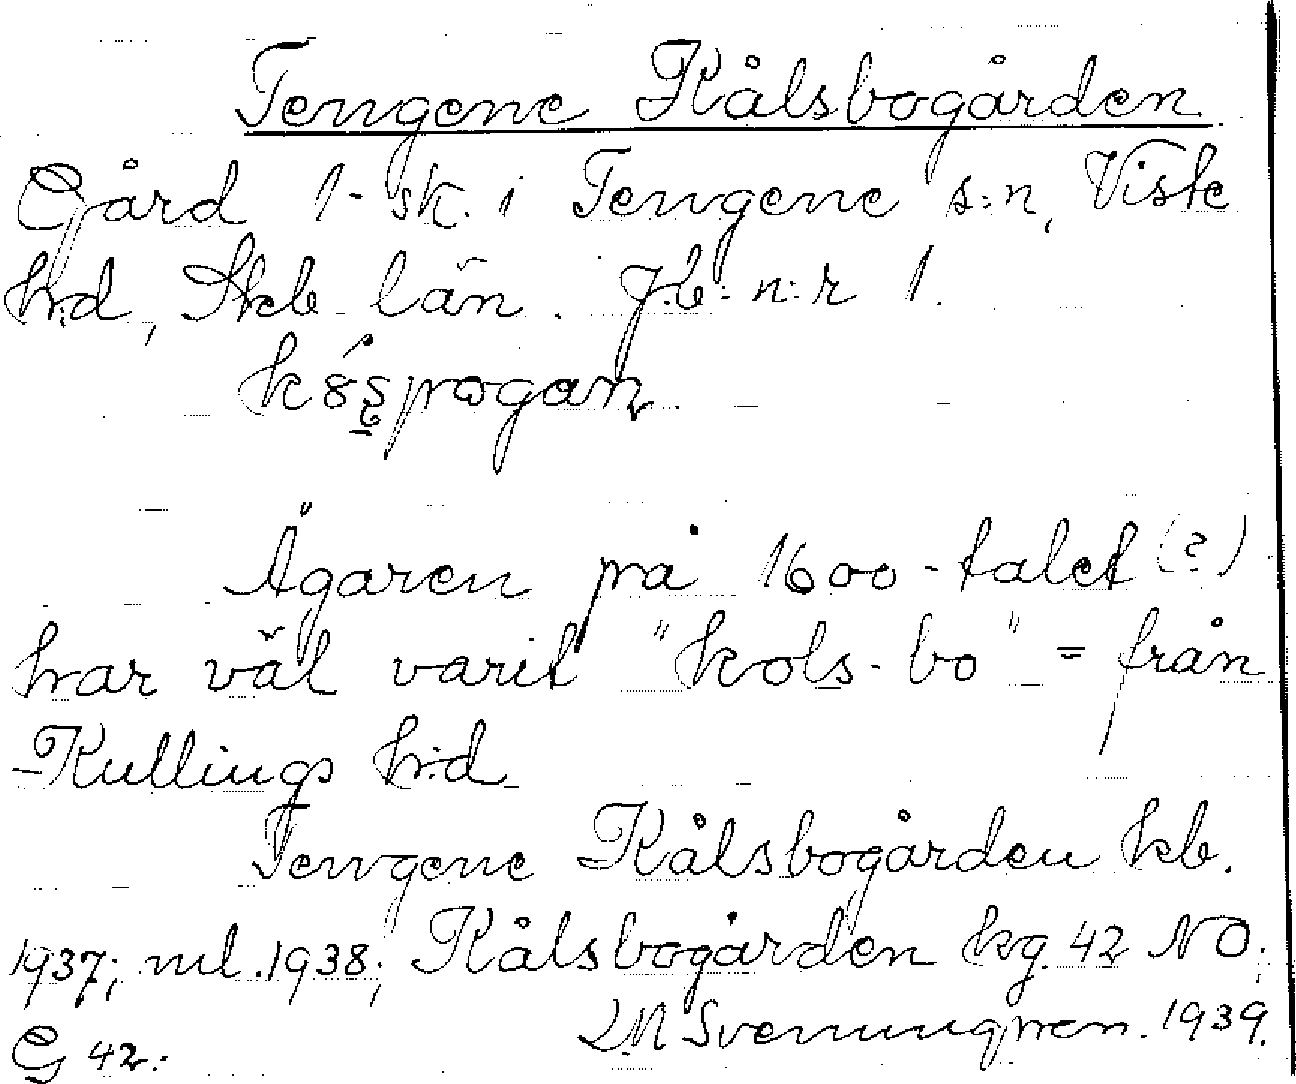 Tengene Kålsbogården
Gård 1- sk. i Tengene s:n, Viste
h:d, Skb län. J.b: n:r 1.
Ägaren på 1600-talet (?)
har väl varit "kols-bo" = från
Kullings h:d
Tengene Kålsbogården kb.
1937; ml. 1938; Kålsbogården kg. 42 NO;
G 42.
LM Svenungsson. 1939.